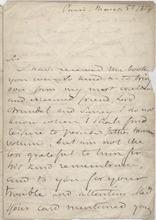 Paris, March 5th
Sir
I have received the book
you were so kind as to
from my most excellent
and esteemed friend Lord
Brougham and Surrey I do
not know when I shall find
leisure to peruse
volume, but am not the
less grateful to him for
his kind remembrance,
and to you for your
trouble and attention. Had
your card mentioned you